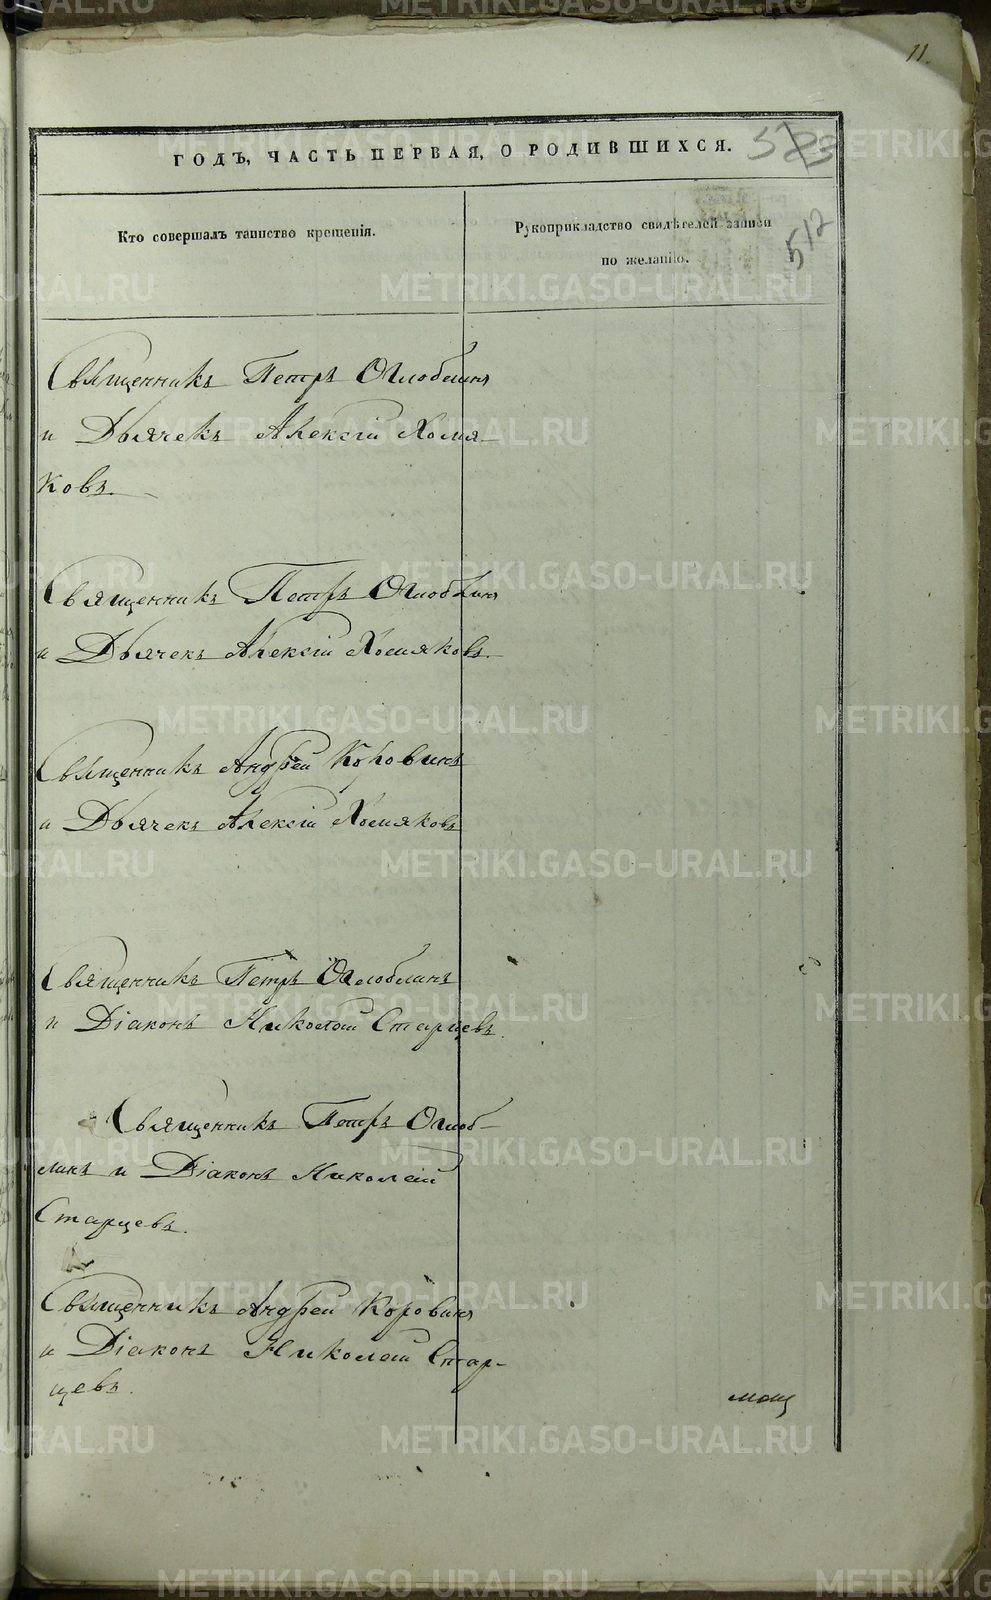 11.
ГОДЪ, ЧАСТЬ ПЕРВАЯ, О РОДИВШИХСЯ.
512
Кто совершалъ таинство крещенія.
Рукоприкладство свидѣтелей записи
по желанію.
Священникъ Петръ Оглоблинъ
и Дьячекъ Алексій Хомя-
ковъ.
Священникъ Петръ Оглоблинъ
и Дьячекъ Алексій Хомяковъ.
Священникъ Андрей Коровинъ
и Дьячекъ Алексій Хомяковъ
Священникъ Петръ Оглоблинъ
и Діаконъ Николай Старцевъ.
Священникъ Петръ Оглоб-
линъ и Діаконъ Николай
Старцевъ.
Священникъ Андрей Коровинъ
и Діаконъ Николай Стар-
цевъ.
METRIKI.GASO-URAL.RU